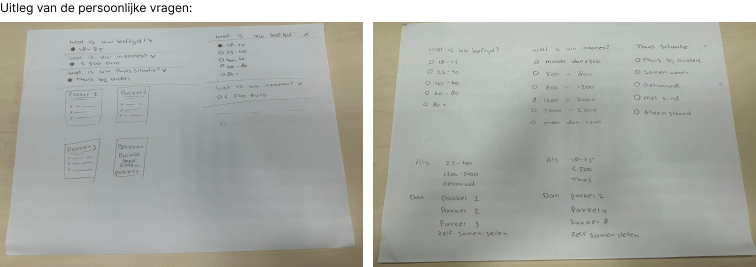 Uitleg van de persoonlijke vragen:
Wat is uw leeftijd? v
18-25
Wat is uw inkomen? v
< 500 euro
Wat is uw Thuis Situatie? v
Thuis bij ouders
Pakket 1
Pakket 2
Pakket 3
Bereken
Wat is uw leeftijd? ^
18-25
25-40
40-60
60-80
80+
Wat is uw inkomen? v
< 500 euro
Wat is uw leeftijd?
18-25
25-40
40-60
60-80
80+
Wat is uw inkomen?
minder dan 500
500 - 800
800 - 1200
1200 - 2000
2000 - 2500
meer dan
Thuis Situatie
Thuis bij ouders
Samen wonen
Getrouwd
met kind
Alleenstaand
Als 25-40
Getrouwd
Dan Pakket 1
Pakket 2
Pakket 3
Zelf samen stellen
Als 18-25
< 500
Thuis
Dan Pakket 2
Pakket 4
Pakket 8
Zelf samen stellen